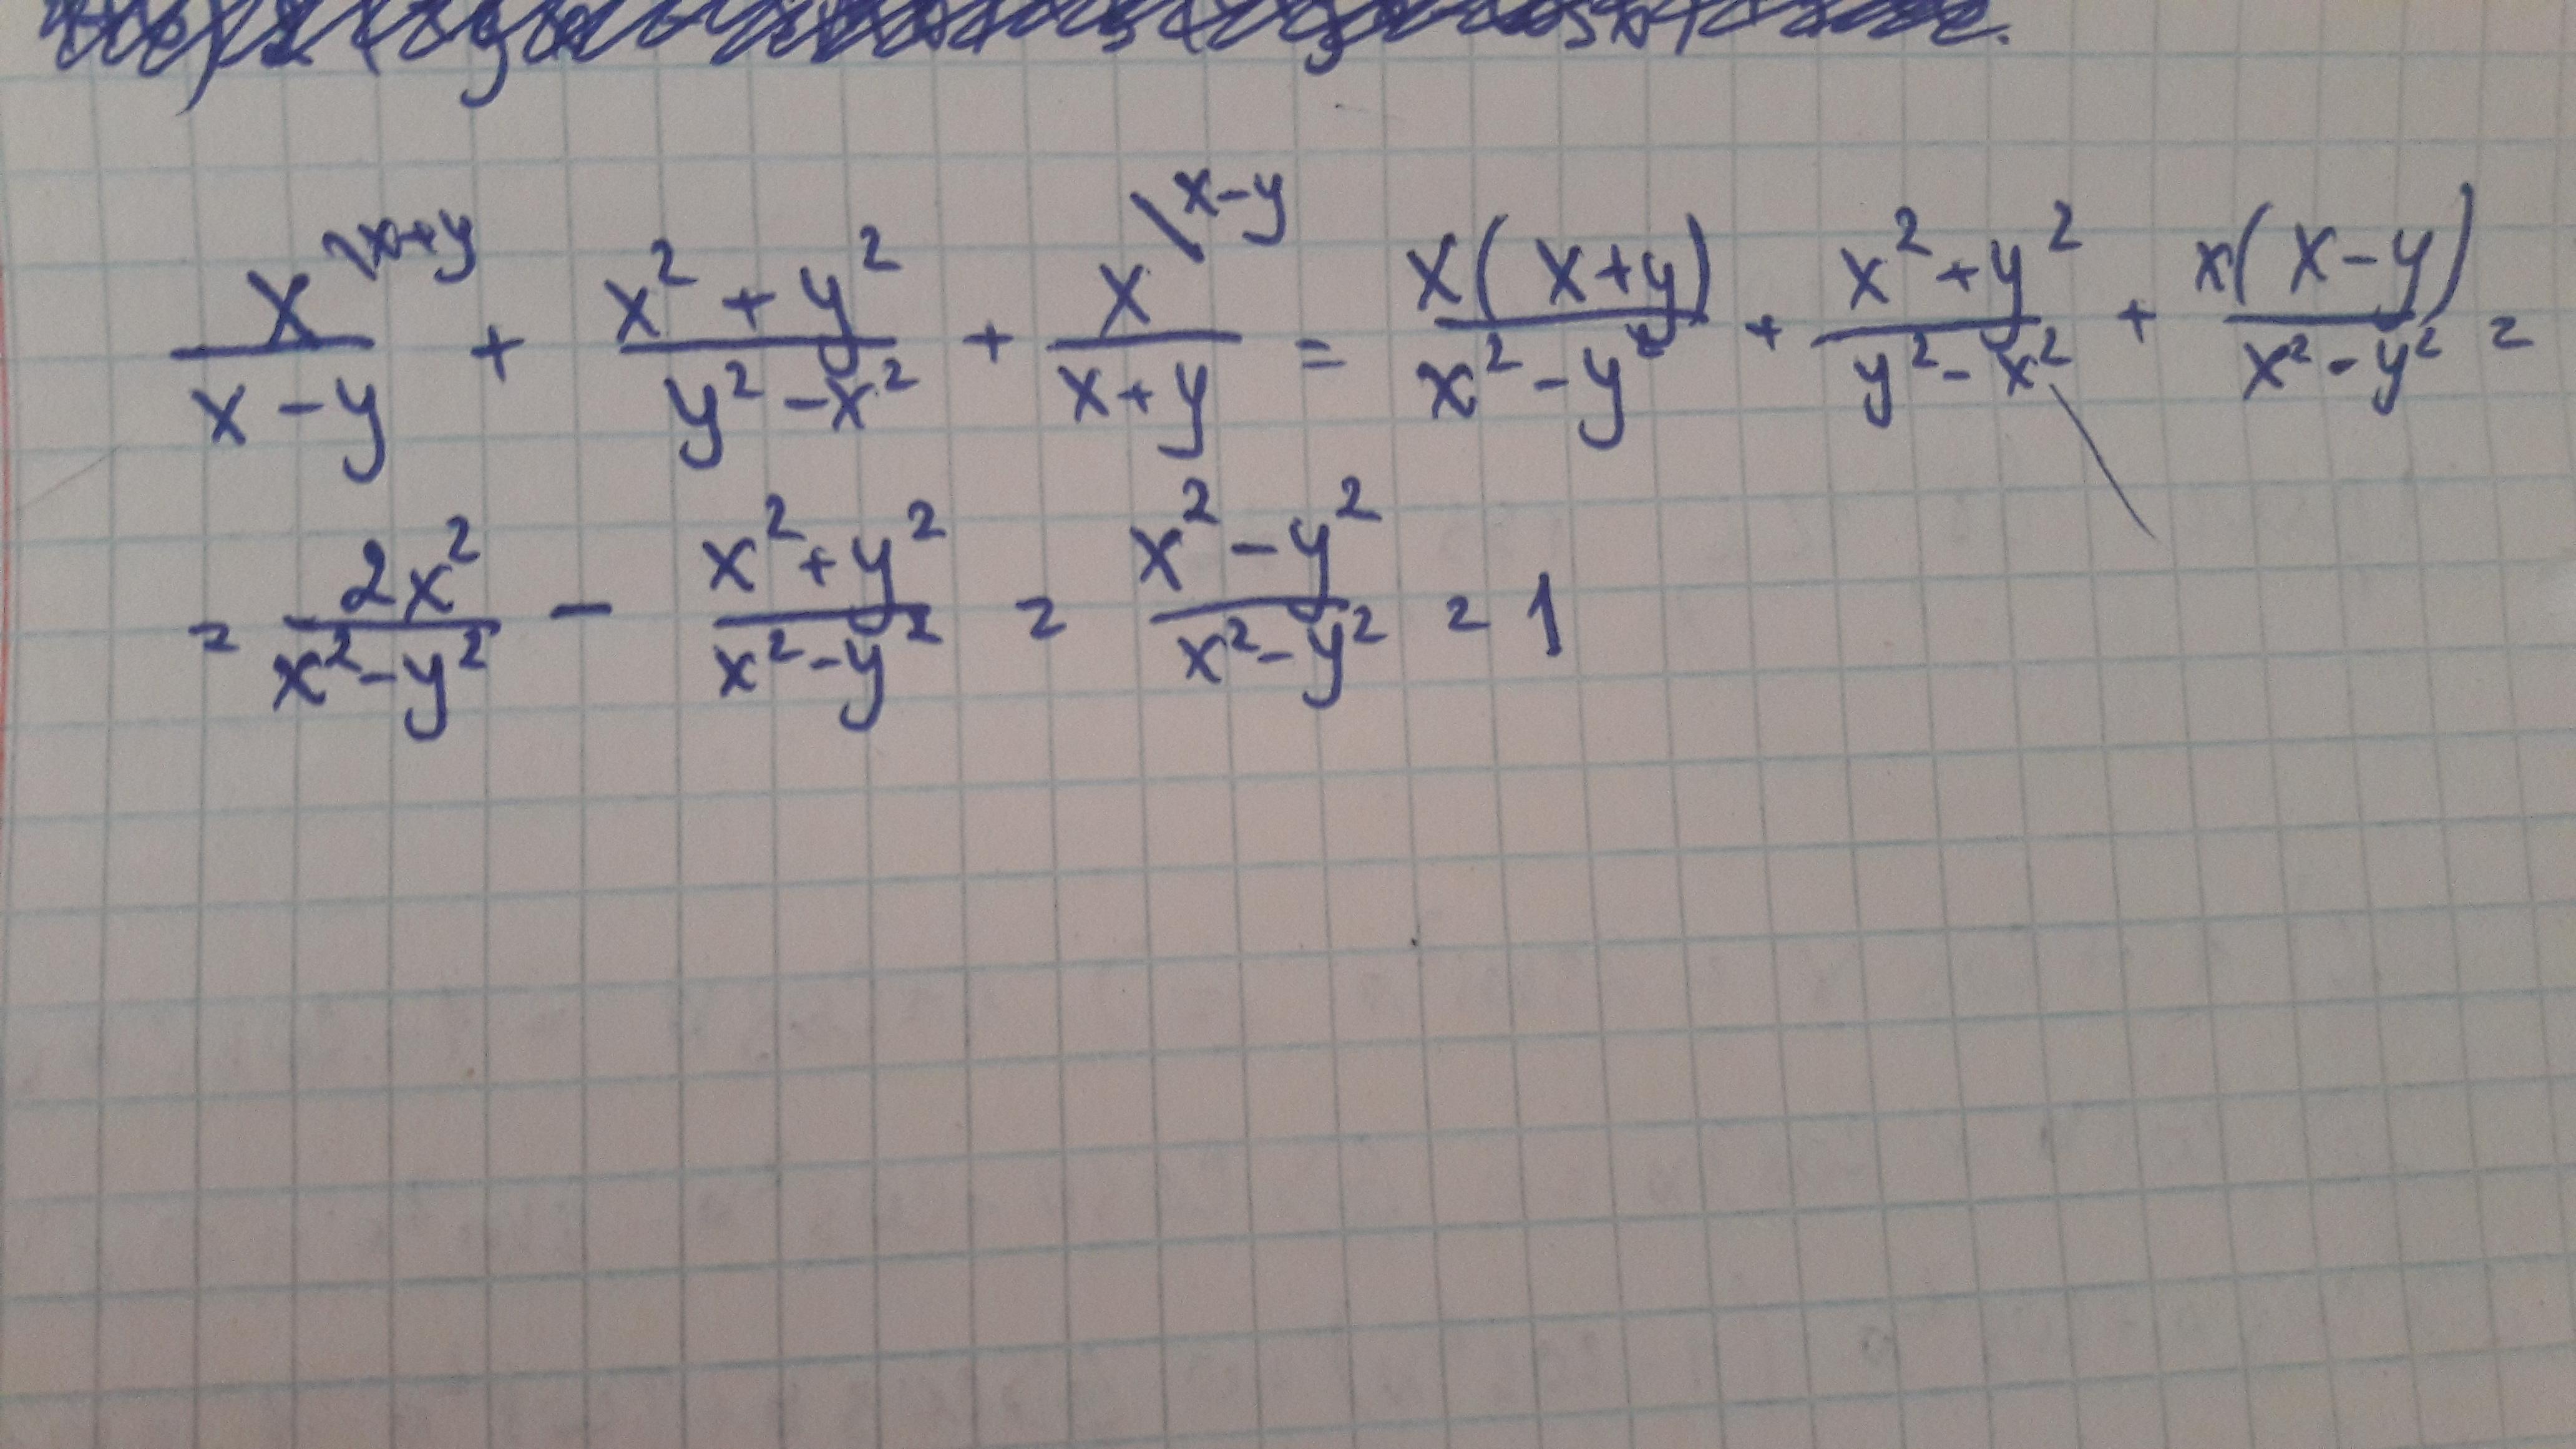 x\x+y/x-y + x²+y²/y²-x² + x\x-y/x+y = x(x+y)/x²-y² + x²+y²/y²-x² + x(x-y)/x²-y² =
= 2x²/x²-y² - x²+y²/x²-y² = x²-y²/x²-y² = 1